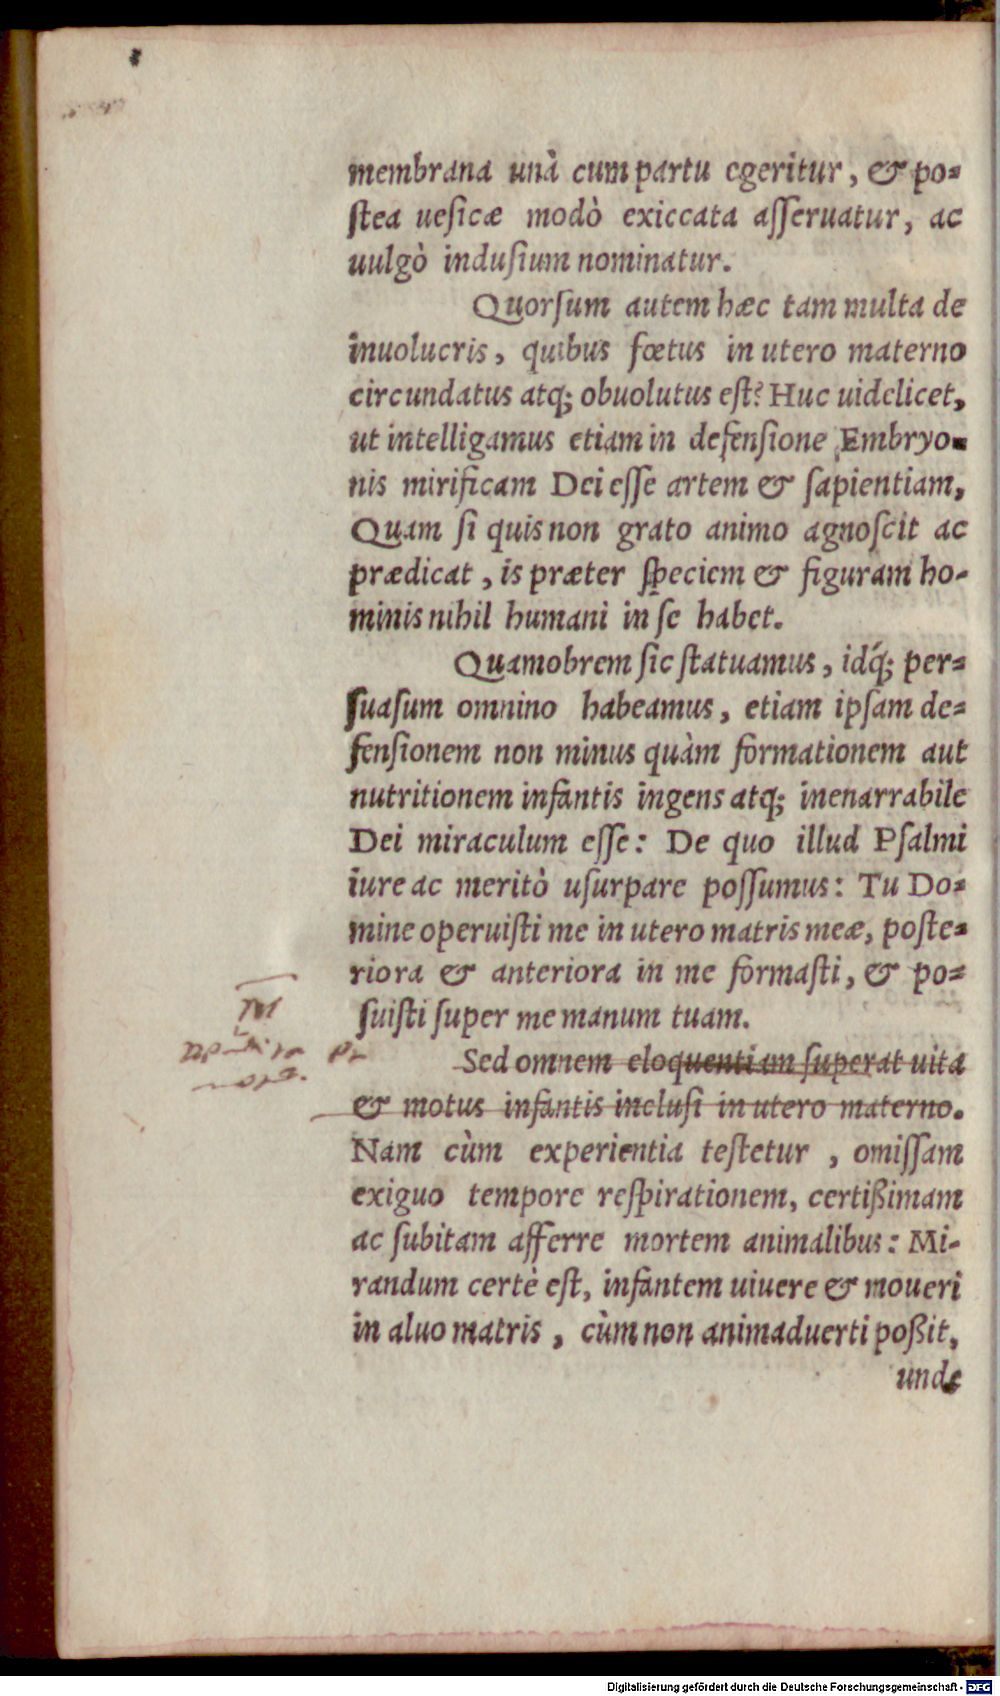 membrana unà cum partu egeritur, & po-
ſtea ueſicæ modò exiccata aſſeruatur, ac
uulgò induſium nominatur.
Quorſum autem hæc tam multa de
inuolucris, quibus fœtus in utero materno
circundatus atq; obuolutus eſt? Huc uidelicet,
ut intelligamus etiam in defenſione Embryo-
nis mirificam Dei eſſe artem & ſapientiam,
Quam ſi quis non grato animo agnoſcit ac
prædicat, is præter ſpeciem & figuram ho-
minis nihil humani in ſe habet.
Quamobrem ſic ſtatuamus, idq́; per-
ſuaſum omnino habeamus, etiam ipſam de-
fenſionem non minus quàm formationem aut
nutritionem infantis ingens atq; inenarrabile
Dei miraculum eſſe: De quo illud Pſalmi
iure ac meritò uſurpare poſſumus: Tu Do-
mine operuiſti me in utero matris meæ, poſte-
riora & anteriora in me formaſti, & po-
ſuiſti ſuper me manum tuam.
Sed omnem eloquentiam ſuperat uita
& motus infantis incluſi in utero materno.
Nam cùm experientia teſtetur, omiſſam
exiguo tempore reſpirationem, certißimam
ac ſubitam afferre mortem animalibus: Mi-
randum certè eſt, infantem uiuere & moueri
in aluo matris, cùm non animaduerti poßit,
unde
Digitalisierung gefördert durch die Deutsche Forschungsgemeinschaft - DFG